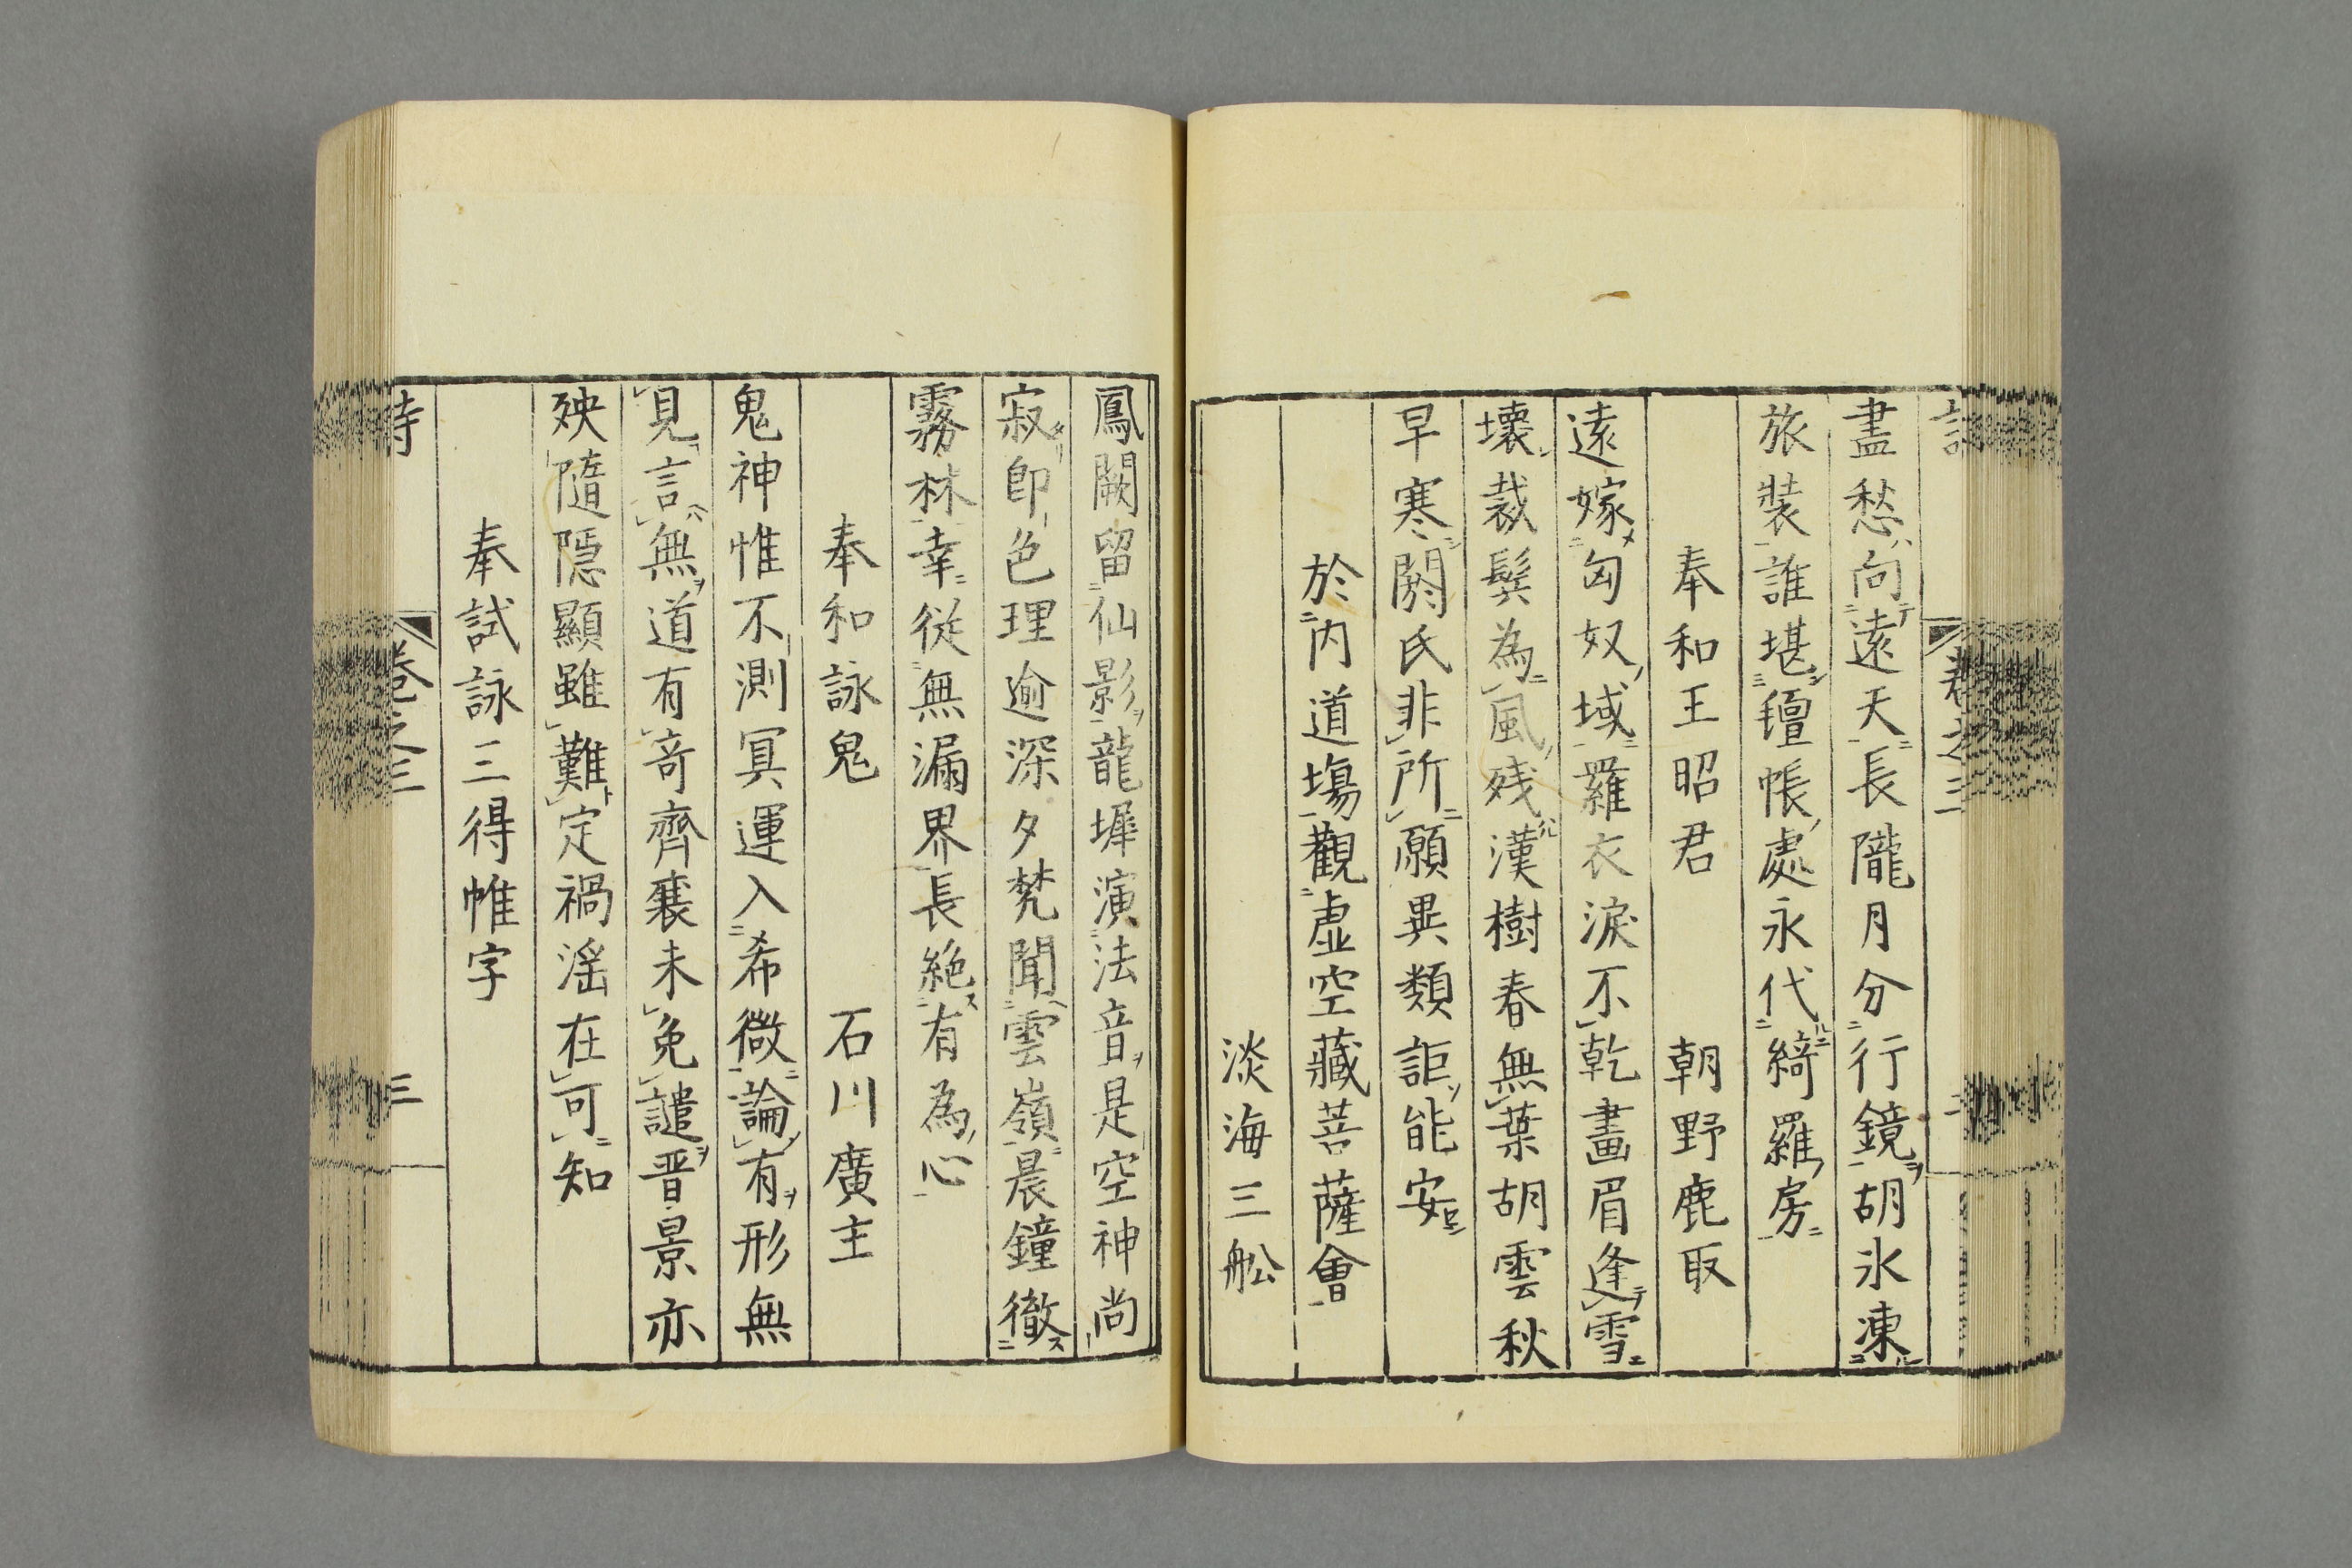 盡愁向遠天長隴月分行鏡胡氷凍
旅裝誰堪氊帳處永代綺羅房
奉和王昭君　朝野鹿取
遠嫁匈奴域羅衣淚不乾畫眉逢雪
壞裁鬂為風殘漢樹春無葉胡雲秋
早寒閼氏非所願異類詎能安
於內道場觀虛空藏菩薩會
淡海三舩
鳳闕留仙影龍墀演法音是空神尚
寂卽色理逾深夕梵聞雲嶺晨鐘徹
霧林幸從無漏界長絶有為心
奉和詠鬼　石川廣主
鬼神惟不測冥運入希微論有形無
見言無道有竒齊襄未免譴晋景亦
殃隨隠顯雖難定禍滛在可知
奉試詠三得帷字
詩
卷之三
三